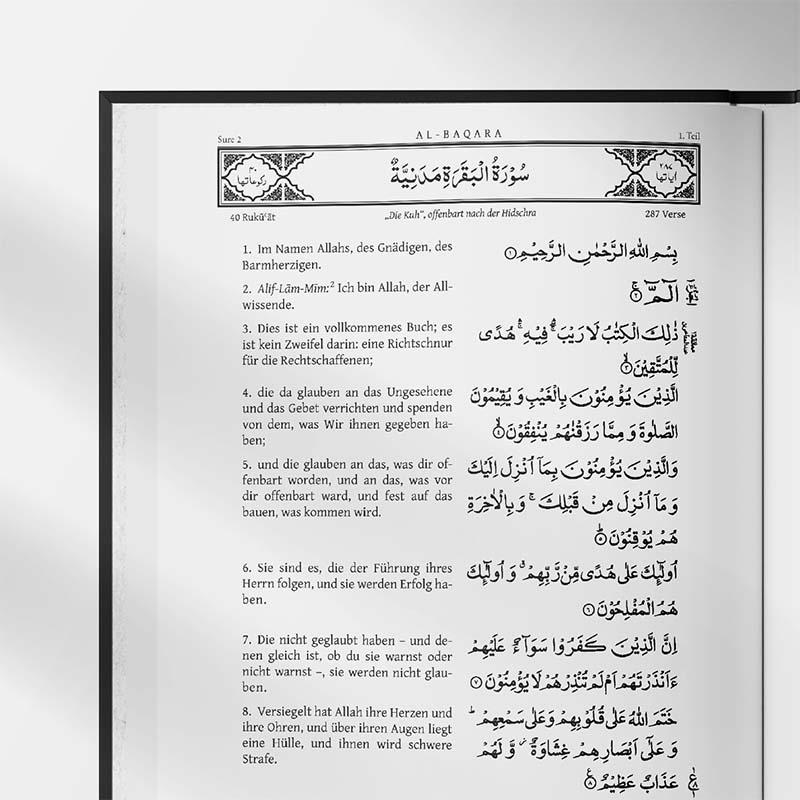 Sure 2
AL-BAQARA
1. Teil
٤٠
رکوعاتها
سُوۡرَۃُ الۡبَقَرَۃِ مَدَنِیَّۃٌ
٢٨٧
ایاتها
40 Rukūʿāt
„Die Kuh“, offenbart nach der Hidschra
287 Verse
1. Im Namen Allahs, des Gnädigen, des
Barmherzigen.
2. Alif-Lām-Mīm:² Ich bin Allah, der All-
wissende.
3. Dies ist ein vollkommenes Buch; es
ist kein Zweifel darin: eine Richtschnur
für die Rechtschaffenen;
4. die da glauben an das Ungesehene
und das Gebet verrichten und spenden
von dem, was Wir ihnen gegeben ha-
ben;
5. und die glauben an das, was dir of-
fenbart worden, und an das, was vor
dir offenbart ward, und fest auf das
bauen, was kommen wird.
6. Sie sind es, die der Führung ihres
Herrn folgen, und sie werden Erfolg ha-
ben.
7. Die nicht geglaubt haben – und de-
nen gleich ist, ob du sie warnst oder
nicht warnst –, sie werden nicht glau-
ben.
8. Versiegelt hat Allah ihre Herzen und
ihre Ohren, und über ihren Augen liegt
eine Hülle, und ihnen wird schwere
Strafe.
بِسۡمِ اللّٰہِ الرَّحۡمٰنِ الرَّحِیۡمِ ١
الٓـمّٓ ۚ ٢
ذٰلِکَ الۡکِتٰبُ لَا رَیۡبَ ۚۖۛ فِیۡہِ ۚۛ ہُدًی
لِّلۡمُتَّقِیۡنَ ۙ ٣
الَّذِیۡنَ یُؤۡمِنُوۡنَ بِالۡغَیۡبِ وَ یُقِیۡمُوۡنَ
الصَّلٰوۃَ وَ مِمَّا رَزَقۡنٰہُمۡ یُنۡفِقُوۡنَ ۙ ٤
وَالَّذِیۡنَ یُؤۡمِنُوۡنَ بِمَاۤ اُنۡزِلَ اِلَیۡکَ
وَ مَاۤ اُنۡزِلَ مِنۡ قَبۡلِکَ ۚ وَ بِالۡاٰخِرَۃِ
ہُمۡ یُوۡقِنُوۡنَ ؕ ٥
اُولٰٓئِکَ عَلٰی ہُدًی مِّنۡ رَّبِّہِمۡ ٭ وَ اُولٰٓئِکَ
ہُمُ الۡمُفۡلِحُوۡنَ ٦
اِنَّ الَّذِیۡنَ کَفَرُوۡا سَوَآءٌ عَلَیۡہِمۡ
ءَاَنۡذَرۡتَہُمۡ اَمۡ لَمۡ تُنۡذِرۡہُمۡ لَا یُؤۡمِنُوۡنَ ٧
خَتَمَ اللّٰہُ عَلٰی قُلُوۡبِہِمۡ وَعَلٰی سَمۡعِہِمۡ ؕ
وَ عَلٰۤی اَبۡصَارِہِمۡ غِشَاوَۃٌ ۫ وَّ لَہُمۡ
عَذَابٌ عَظِیۡمٌ ٨